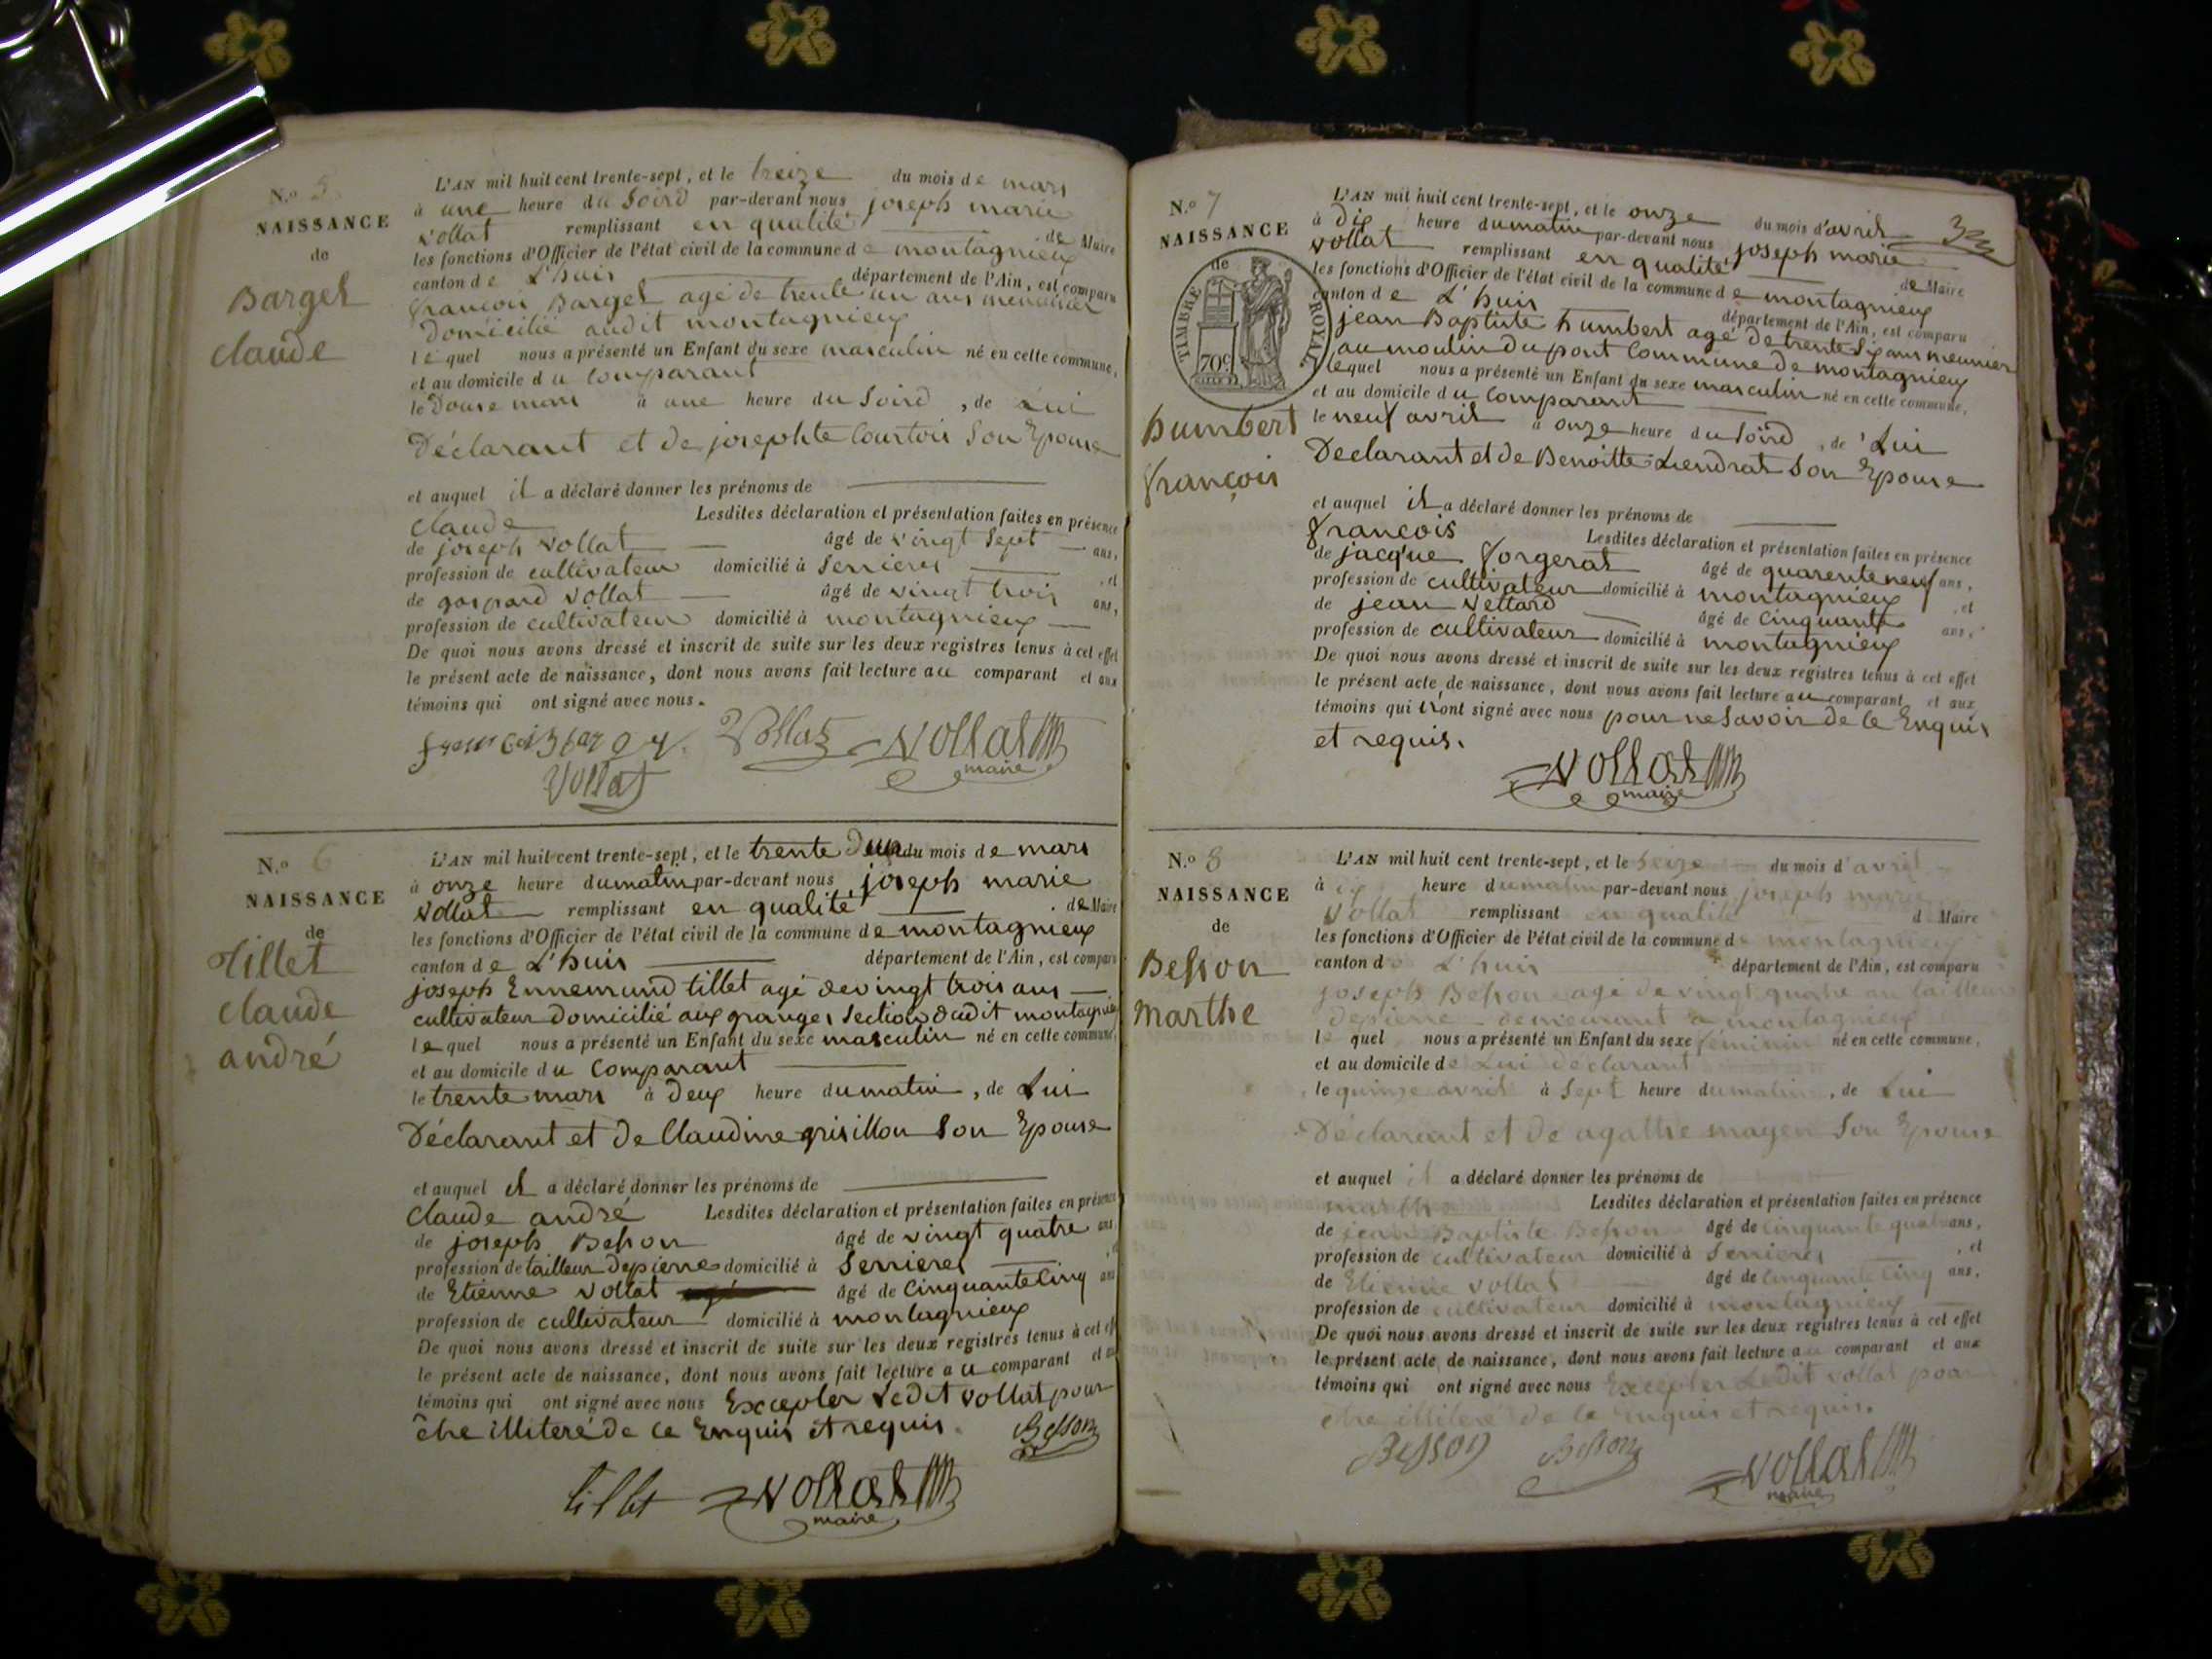 N.o 5
NAISSANCE
de
Barget
claude
L'AN mil huit cent trente-sept, et le treize du mois de mars
à une heure du Soird par-devant nous joseph marie
vollat remplissant en qualité de Maire
les fonctions d'Officier de l'état civil de la commune de montagnieux
canton de L'huis département de l'Ain, est comparu
francois Barget agé de trente un ans menuisier
Domicilié audit montagnieux
lequel nous a présenté un Enfant du sexe masculin né en cette commune,
et au domicile du Comparant
le Douse mars à une heure du Soird, de Lui
Déclarant et de josephte Courtois Son Epouse
et auquel il a déclaré donner les prénoms de
claude Lesdites déclaration et présentation faites en présence
de joseph vollat âgé de vingt Sept ans,
profession de cultivateur domicilié à Serrieres , et
de gaspard vollat âgé de vingt trois ans,
profession de cultivateur domicilié à montagnieux
De quoi nous avons dressé et inscrit de suite sur les deux registres tenus à cet effet
le présent acte de naissance, dont nous avons fait lecture au comparant et aux
témoins qui ont signé avec nous.
Vollat vollat
maire
Vollat
N.o 6
NAISSANCE
de
Tillet
claude
andré
L'AN mil huit cent trente-sept, et le trente Deux du mois de mars
à onze heure du matin par-devant nous joseph marie
vollat remplissant en qualité de Maire
les fonctions d'Officier de l'état civil de la commune de montagnieux
canton de L'huis département de l'Ain, est comparu
joseph Ennemund tillet agé de vingt trois ans
cultivateur Domicilié aux granges Section dudit montagnieux
lequel nous a présenté un Enfant du sexe masculin né en cette commune,
et au domicile du Comparant
le trente mars à Deux heure du matin, de Lui
Déclarant et de Claudine grisillon Son Epouse
et auquel il a déclaré donner les prénoms de
Claude andré Lesdites déclaration et présentation faites en présence
de joseph Besson âgé de vingt quatre ans,
profession de tailleur Depierre domicilié à Serrieres , et
de Etienne vollat âgé de Cinquante Cinq ans
profession de cultivateur domicilié à montagnieux
De quoi nous avons dressé et inscrit de suite sur les deux registres tenus à cet eff
le présent acte de naissance, dont nous avons fait lecture au comparant et aux
témoins qui ont signé avec nous Excepter Ledit vollat pour
être illiteré de ce Enquis et requis.
Besson
tillet vollat
maire
N.o 7
NAISSANCE
de
TIMBRE ROYAL
70c
humbert
françois
L'AN mil huit cent trente-sept, et le onze du mois d'avril
à dix heure du matin par-devant nous joseph marie
vollat remplissant en qualité de Maire
les fonctions d'Officier de l'état civil de la commune de montagnieux
canton de L'huis département de l'Ain, est comparu
jean Baptiste humbert agé de trente Six ans meunier
au moulin Du pont Commune De montagnieux
lequel nous a présenté un Enfant du sexe masculin né en cette commune,
et au domicile du Comparant
le neuf avril à onze heure du Soird, de Lui
Declarant et de Benoitte Liendrat Son Epouse
et auquel il a déclaré donner les prénoms de
francois Lesdites déclaration et présentation faites en présence
de jacque forgerat âgé de quarente neuf ans,
profession de cultivateur domicilié à montagnieux , et
de jean vettard âgé de Cinquante ans,
profession de cultivateur domicilié à montagnieux
De quoi nous avons dressé et inscrit de suite sur les deux registres tenus à cet effet
le présent acte de naissance, dont nous avons fait lecture au comparant et aux
témoins qui n'ont signé avec nous pour ne Savoir de Ce Enquis
et requis.
vollat
maire
N.o 8
NAISSANCE
de
Besson
marthe
L'AN mil huit cent trente-sept, et le Seize du mois d'avril
à dix heure du matin par-devant nous joseph marie
vollat remplissant en qualité d Maire
les fonctions d'Officier de l'état civil de la commune de montagnieux
canton de L'huis département de l'Ain, est comparu
joseph Besson agé de vingt quatre an tailleur
depierre demeurant à montagnieux
lequel nous a présenté un Enfant du sexe féminin né en cette commune,
et au domicile de Lui declarant
le quinze avril à Sept heure du matin, de Lui
Déclarant et de agathe mayen Son Epouse
et auquel il a déclaré donner les prénoms de
marthe Lesdites déclaration et présentation faites en présence
de jean Baptiste Besson âgé de cinquante quatre ans,
profession de cultivateur domicilié à Serrieres , et
de Etienne vollat âgé de Cinquante Cinq ans,
profession de cultivateur domicilié à montagnieux
De quoi nous avons dressé et inscrit de suite sur les deux registres tenus à cet effet
le présent acte de naissance, dont nous avons fait lecture au comparant et aux
témoins qui ont signé avec nous Excepter Ledit vollat pour
être illiteré de Ce enquis et requis.
Besson Besson vollat
maire